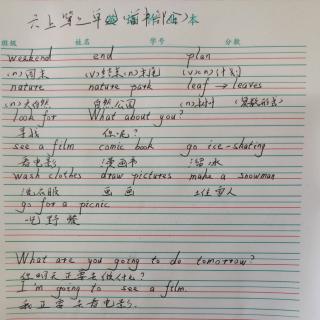 六上第二单 本
班级 姓名 学号 分数
weekend end plan
(n)周末 (v)结束(n)末尾 (v)(n)计划
nature nature park leaf → leaves
(n)大自然 自然公园 (n)树叶 (复数形式)
look for What about you?
寻找 你呢?
see a film comic book go ice-skating
看电影 漫画书 溜冰
wash clothes draw pictures make a snowman
洗衣服 画画 堆雪人
go for a picnic
吃野餐
What are you going to do tomorrow?
你明天正要去做什么?
I'm going to see a film.
我正要去看电影.